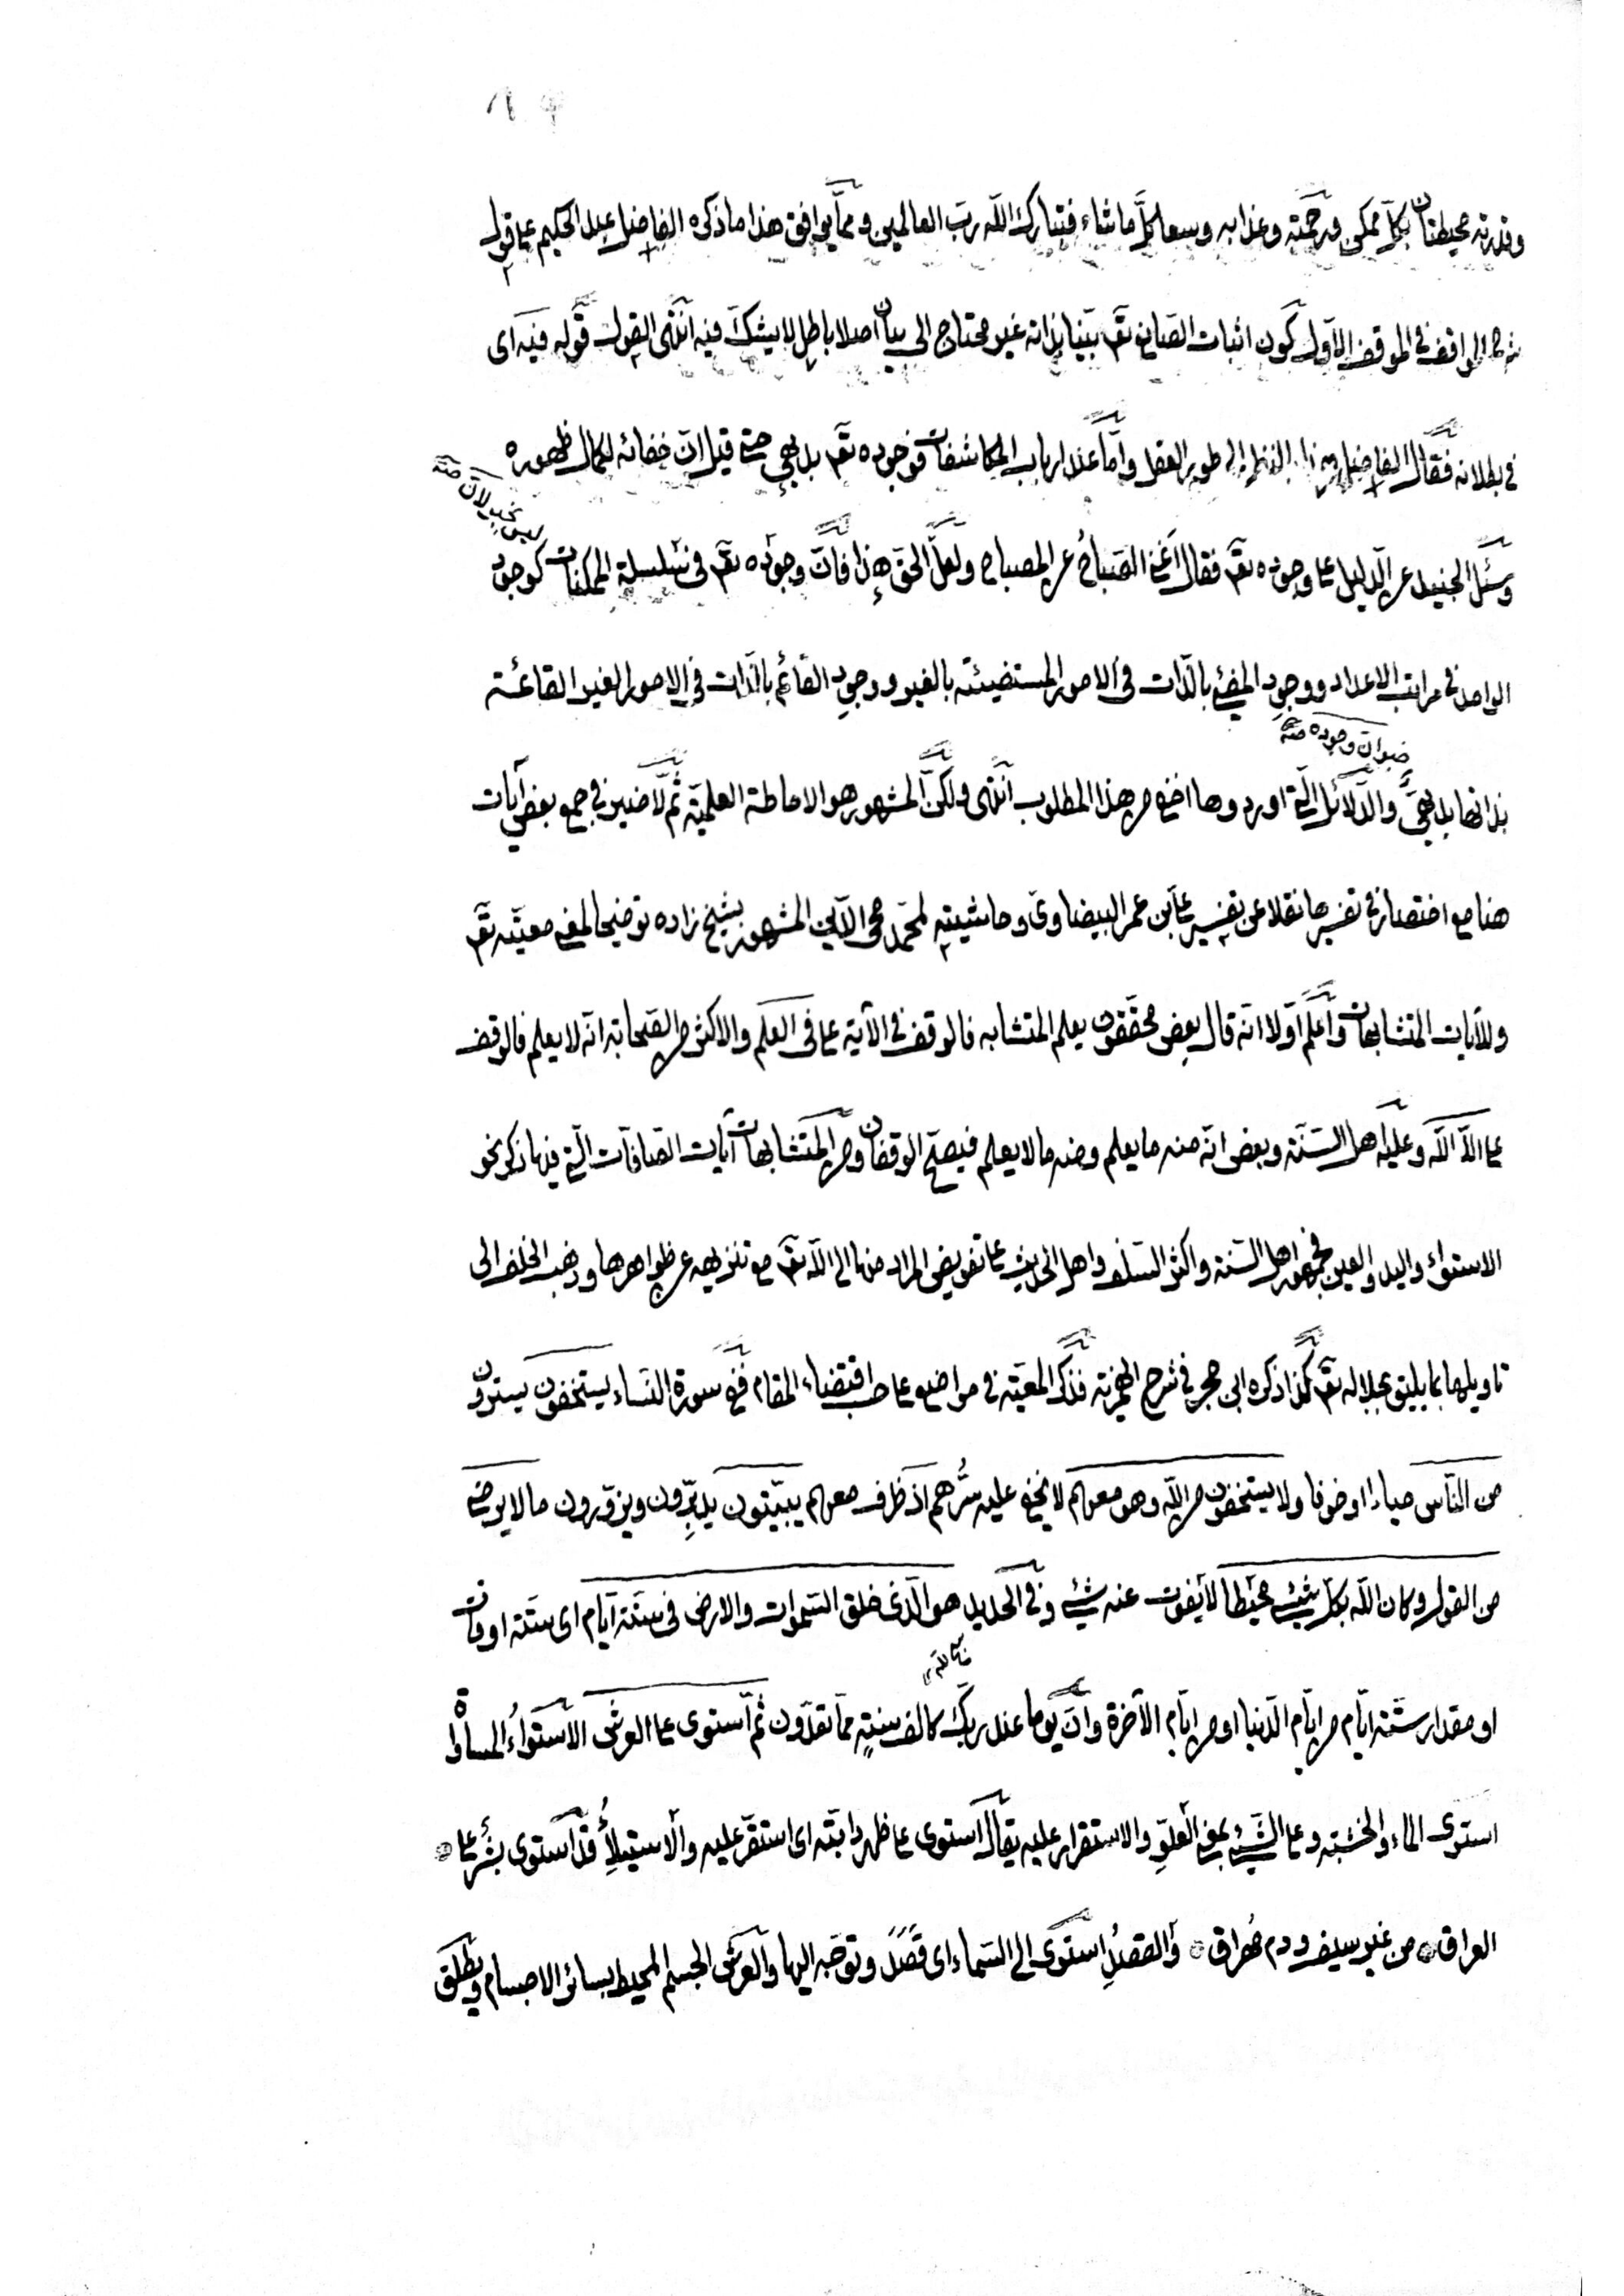 وقدرته محيطتان بكلّ ممكن ورحمته وعذابه وسعا كلَّ ما شاء فتبارك اللّه ربّ العالمين وممّا يوافق هذا ما ذكره الفاضل عبد الحكيم على قول
شرح المواقف في الموقف الاوّل كون اثبات الصّانع تع‍ بيّنا بذاته غير محتاج الى بيان اصلا باطل لا يشكّ فيه انتهى القول قوله فيه اى
في بطلانه فقال الفاضل هذا بالنظر الى طور العقل وامّا عند ارباب المكاشفات فوجوده تع‍ بديهي حتى قيل انّ خفائه لكمال ظهوره
وسئل الجنيد عن الدّليل على وجوده تع‍ فقال اَغنى الصّباحُ عن المصباح ولعلّ الحق هذا فانّ وجوده تع‍ في سلسلة الممكنات كوجود
ليس بخبر لانّ منه
الواحد في مراتب الاعداد ووجودِ المضئ بالذّات في الامور المستضيئة بالغير ووجودِ القائم بالذّات في الامور الغير القائمة
خبر انّ وجوده منه
بذاتها بديهىٌّ والدّلائل الّتى اوردوها اخفى من هذا المطلوب انتهى ولكنّ المشهور هو الاحاطة العلميّة ثمّ لا ضير في جمع بعض آيات
هنا مع اختصار في تفسيرها نقلا عن تفسير على بن عمر البيضاوى وحاشيته لمحمّد محى الدّين المشهور بشيخ زاده توضيحا لمعنى معيّته تع‍
وللآيات المتشابهات واعلم اوّلا انّه قال بعض محقّقون يعلم المتشابه فالوقف في الآية على في العلم والاكثر من الصّحابة انّه لا يعلم فالوقف
على الّا اللّه وعليه اهل السّنّة وبعض انّه منه ما يعلم ومنه ما لا يعلم فيصحّ الوقفان ومن المتشابهات آيات الصّفات الّتى فيها ذكر نحو
الاستواء واليد والعين فجمهور اهل السّنة واكثر السّلف واهل الحديث على تفويض المراد منها الى اللّه تع‍ مع تنزيهه عن ظواهرها وذهب الخلف الى
تاويلها بما يليق بجلاله تع‍ كذا ذكره ابن حجر في شرح الهمزية فذكر المعيّة في مواضع على حسب اقتضاء المقام ففي سورة النّساء يستخفون يسترون
من النّاس حياء او خوفا ولا يستخفون من اللّه وهو معهم لا يخفى عليه سرُّهم اذ ظرف معهم يبيّتون يدبِّرون ويزوّرون ما لا يرضى
من القول وكان اللّه بكل شئ محيطا لا يفوت عنه شئ وفي الحديد هو الّذى خلق السّموات والارض في ستّة ايّام اى ستّة اوقات
او مقدار ستّة ايّام من ايّام الدّنيا او من ايّام الآخرة وانّ يوما عند ربّك كالف سنةٍ ممّا تعدّون ثمّ استوى على العرش الاستواءُ المساواة
استوى الماء والخشبة وعلى الشّئ بمعنى العلوّ والاستقرار عليه يقال استوى على ظهر دابّته اى استقرّ عليه والاستيلاءُ قد استوى بشر على
العراق من غير سيف ودم مُهراق والقصدُ استوى الى السّماء اى قَصَدَ وتوجّه اليها والعرش الجسم المحيط بسائر الاجسام ويطلق